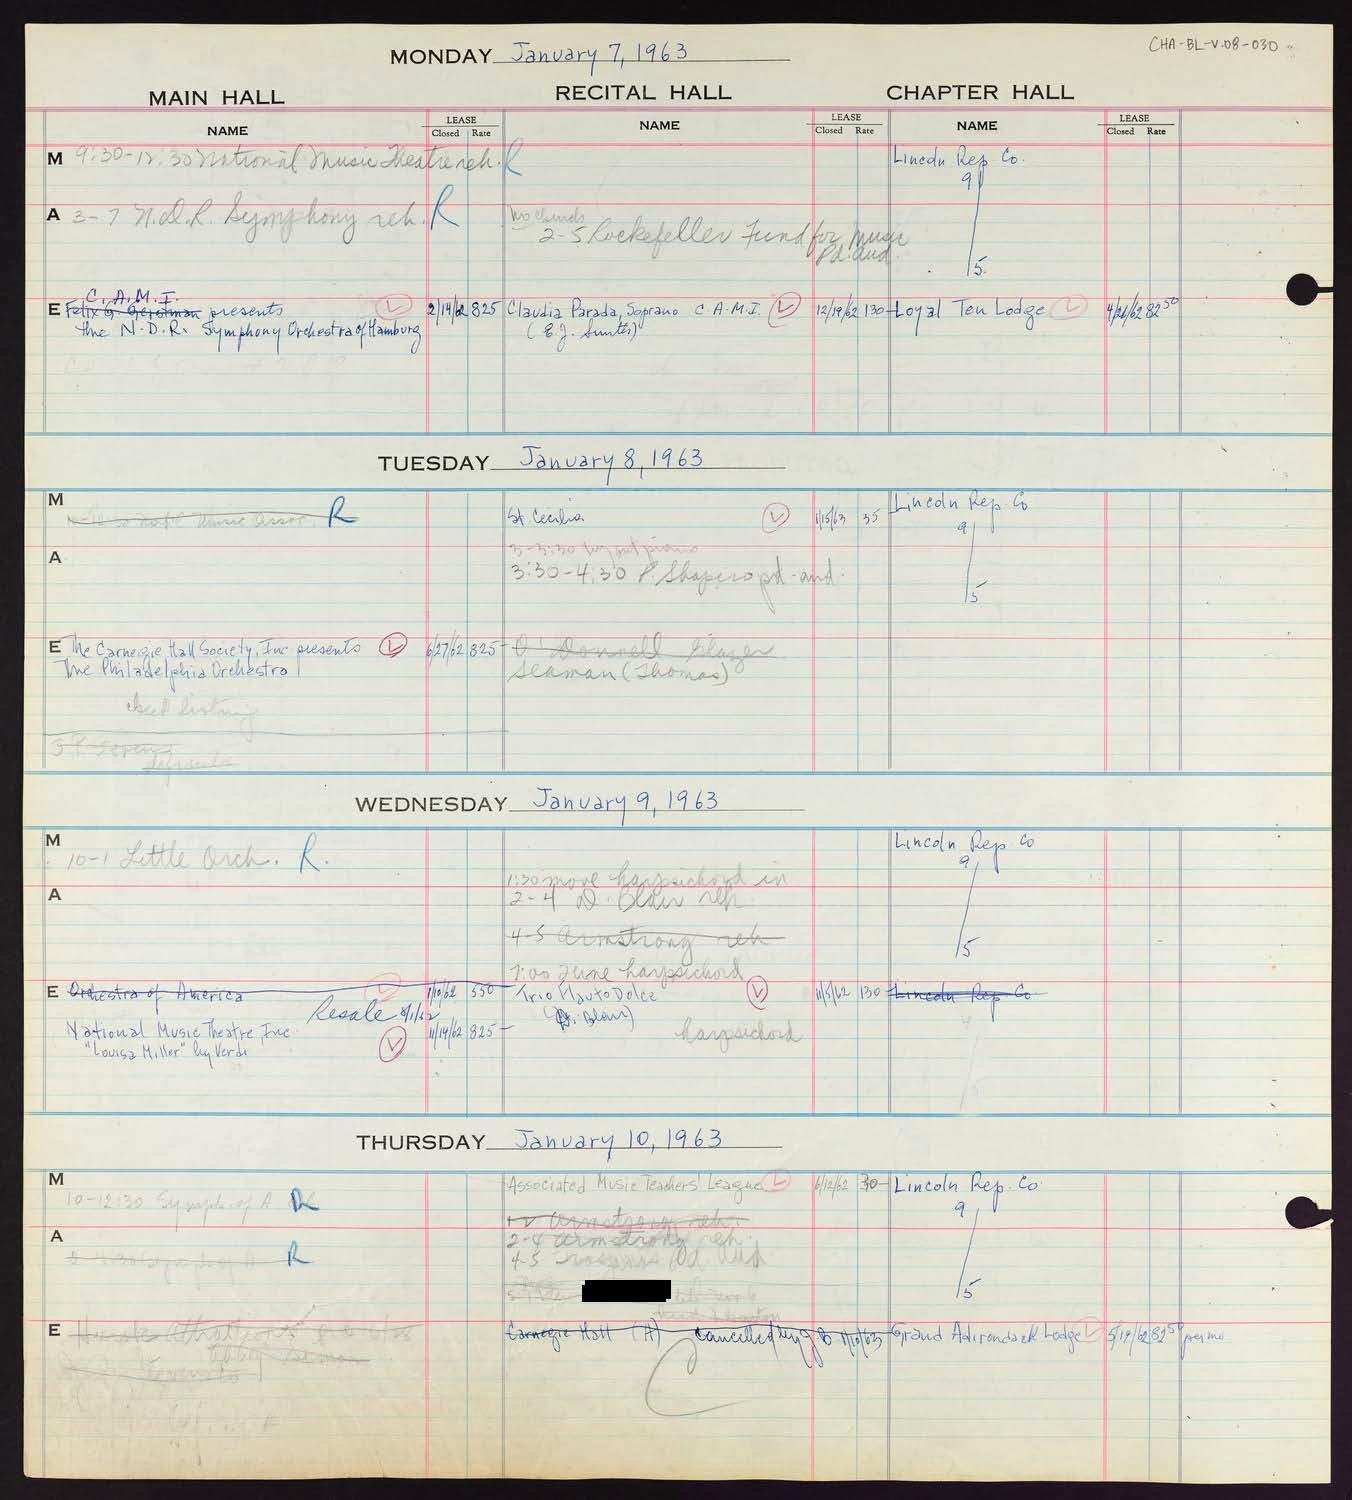 CHA-BL-V.08-030
MONDAY January 7, 1963
MAIN HALL RECITAL HALL CHAPTER HALL
NAME LEASE Closed Rate NAME LEASE Closed Rate NAME LEASE Closed Rate
M 9:30-12:30 National Music Theatre reh. R Lincoln Rep. Co.
9
A 3-7 N.D.R. Symphony reh. R
2-5 Rockefeller Fund for Music
Pd. aud.
5
C.A.M.I.
E Felix G. Gerstman presents 2/14/62 825 Claudia Parada, Soprano C.A.M.I. 12/19/62 130- Loyal Ten Lodge 82 50
the N.D.R. Symphony Orchestra of Hamburg
TUESDAY January 8, 1963
M Lincoln Rep. Co
R St. Cecilia 1/15/63 35 9
A 3-3:30
3:30-4:30 P. Shapiro pd. aud. 5
E The Carnegie Hall Society, Inc presents 6/27/62 825- O'Donnell Glazer
The Philadelphia Orchestra Seaman (Thomas)
listing
WEDNESDAY January 9, 1963
M Lincoln Rep Co
10-1 Little Orch. R. 9
1:30 move harpsichord in
A 2-4 D. Blair reh.
4-5 Armstrong reh 5
7:00 Tune harpsichord
E Orchestra of America 1/10/62 550 Trio Flauto Dolce 11/5/62 130 Lincoln Rep Co.
Resale 8/1/62 (D. Blair)
National Music Theatre, Inc. 11/19/62 825- harpsichord
"Louisa Miller" by Verdi
THURSDAY January 10, 1963
M Associated Music Teachers' League 6/12/62 30- Lincoln Rep. Co.
10-12:30 Symph. of A R 9
Armstrong reh.
A 2-4 Armstrong reh.
R 4-5 Pd. Aud
5
E Carnegie Hall (A) cancelled by 1/10/63 Grand Adirondack Lodge 5/19/62 82 50 per mo